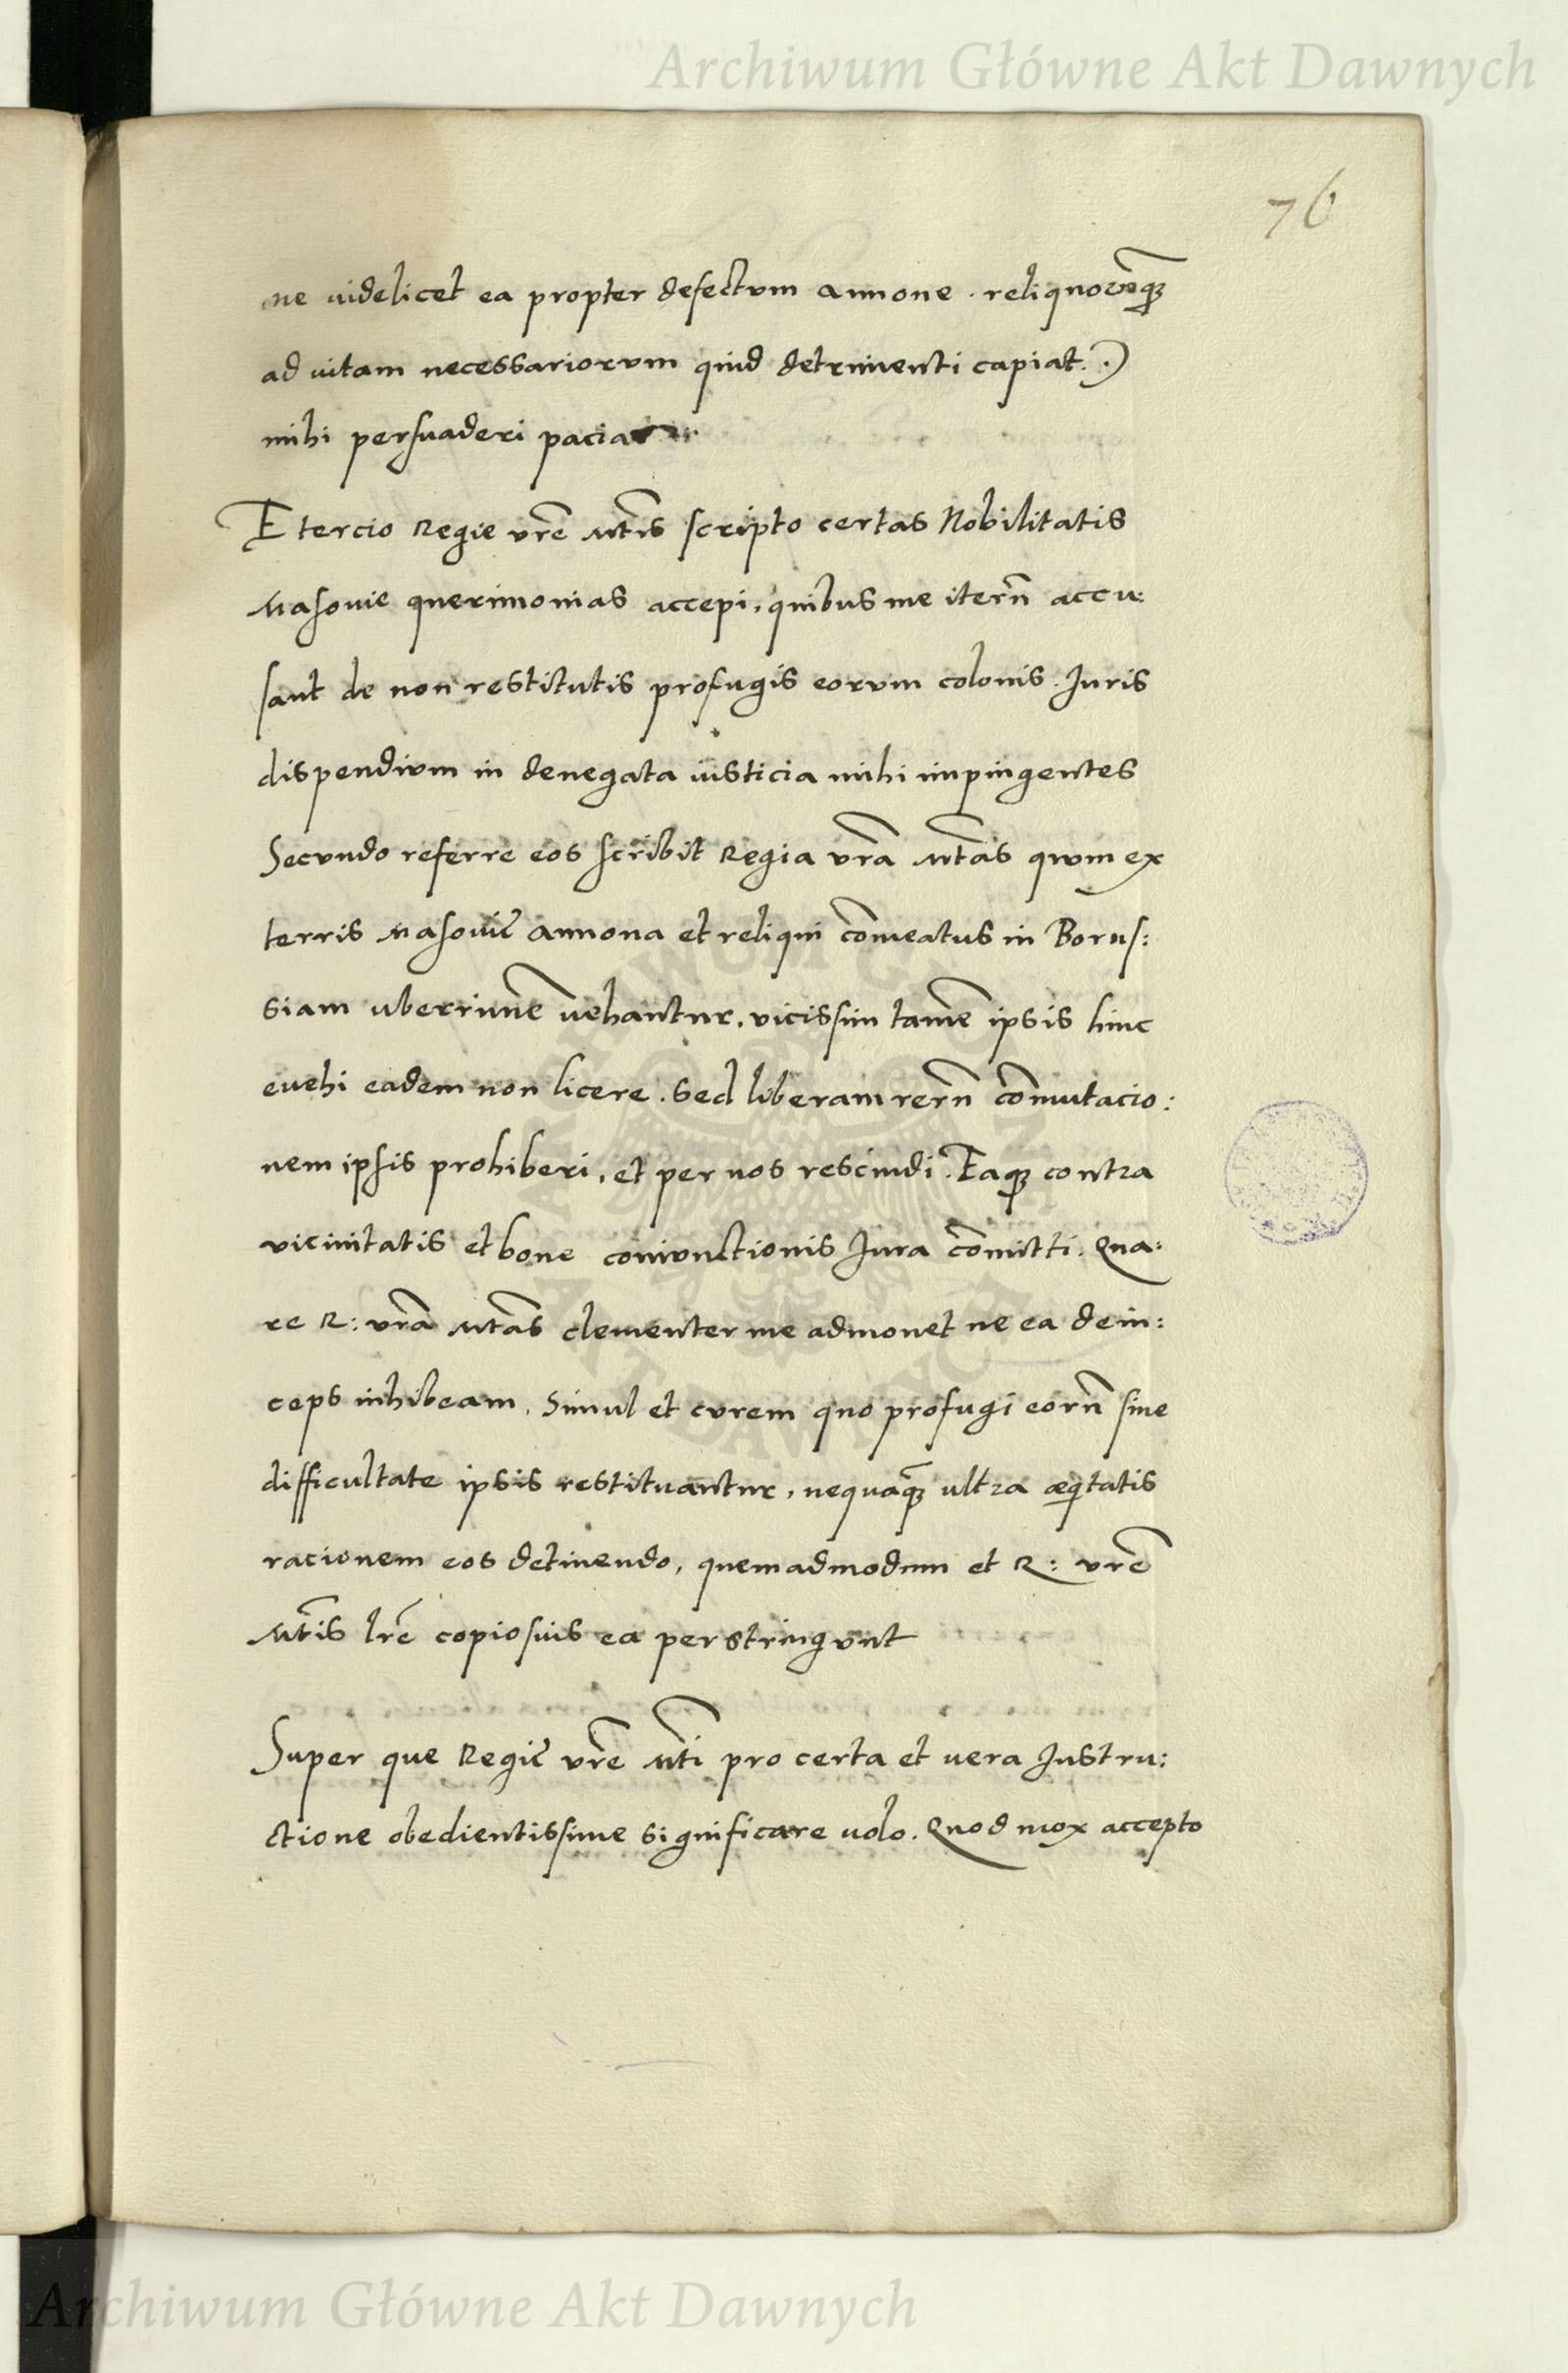 Archiwum Główne Akt Dawnych
76
ne uidelicet ea propter defectvm annone . reliquorvmqꝫ
ad uitam necessariorvm quid detrimenti capiat .)
mihi persuaderi paciar
E tercio Regie vrē Mtīs scripto certas Nobilitatis
Masouie querimonias accepi, quibus me iterū accu:
sant de non restitutis profugis eorvm colonis . Juris
dispendivm in denegata iusticia mihi impingentes
Secvndo referre eos scribit Regia vrā Mtās qvom ex
terris Masouię annona et reliqui cōmeatus in Borus:
siam uberrime uehantur, vicissim tamē ipsis hinc
euehi eadem non licere . Sed liberam rerū cōmutacio:
nem ipsis prohiberi, et per nos rescindi . Eaqꝫ contra
vicinitatis et bone conivnctionis Jura cōmitti . Qua:
re R: vrā Mtās clementer me admonet ne ea dein:
ceps inhibeam, Simul et cvrem quo profugi eorū sine
difficultate ipsis restituantur, nequaqꝫ ultra æqitatis
racionem eos detinendo, quemadmodum et R: vrē
Mtīs lrē copiosius ea perstringvnt
Super que Regię vrē Mti pro certa et uera Instru:
ctione obedientissime significare uolo . Quod mox accepto
Archiwum Główne Akt Dawnych